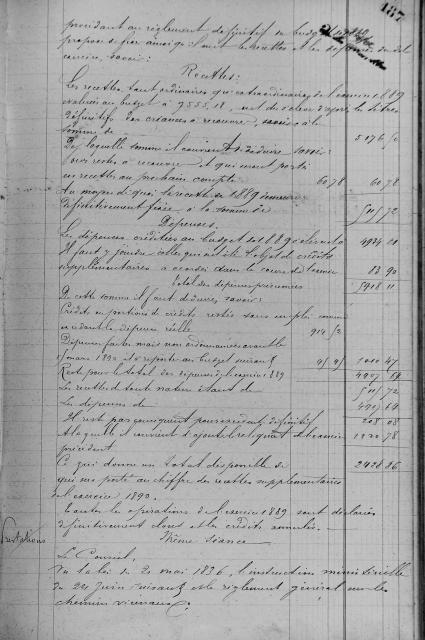 187
procédant au règlement définitif du budget
propose de fixer ainsi qu'il suit les recettes et les dépenses du dit
exercice, savoir :
Recettes :
Les recettes tant ordinaires qu'extraordinaires de l'exercice 1889
évaluées au budget à 9555,18, ont dû s'élever d'après les titres
définitifs des créances à recouvrer, savoir à la
somme de 5176 50
De laquelle somme il convient de déduire savoir :
pour restes à recouvrer et qui seront portés
en recette au prochain compte 60 78 60 78
Au moyen de quoi la recette de 1889 demeure
définitivement fixée à la somme de 5115 72
Dépenses.
Les dépenses créditées au budget de 1889
Il faut y joindre celles qui ont été l'objet de crédits
supplémentaires accordés dans le cours de l'année 83 90
Total des dépenses présumées 5918 11
De cette somme il faut déduire, savoir :
Crédits ou portions de crédits restés sans emploi comme
excédant la dépense réelle 914 52
Dépenses faites mais non ordonnancées avant le
15 mars 1890 et à reporter au budget suivant 95 95 1010 47
Reste pour le total des dépenses de l'exercice 1889 4907 64
Les recettes de toute nature étant de 5115 72
Les dépenses de 4907 64
Il reste par conséquent pour excédent définitif 208 08
à laquelle il convient d'ajouter le reliquat de l'exercice 2220 78
précédent
Ce qui donne un total disponible de 2428 86
qui sera porté au chiffre des recettes supplémentaires
de l'exercice 1890.
Toutes les opérations de l'exercice 1889 sont déclarées
définitivement closes et les crédits annulés.
Même séance
Prestations
Le Conseil,
Vu la loi du 21 mai 1836, l'instruction ministérielle
du 24 juin suivant et le règlement général sur les
chemins vicinaux,